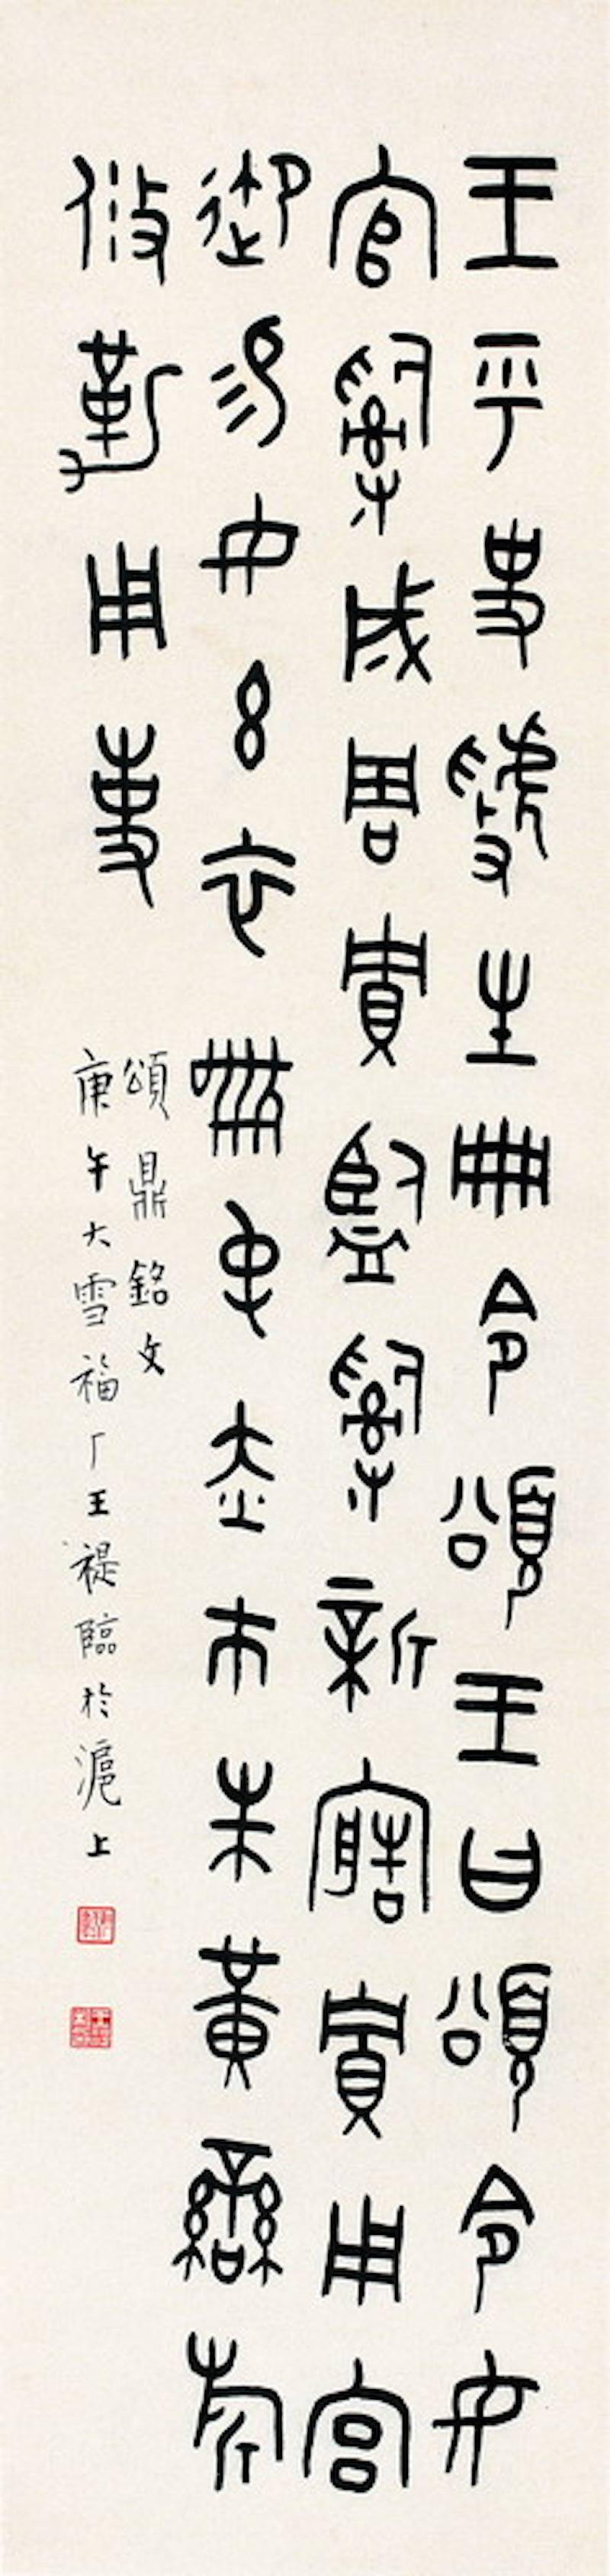 王乎史虢生冊令頌王曰頌令女
官𤔲成周賈監𤔲新造賈用宮
御易女玄衣黹屯赤巿朱黃䜌旂
攸勒用事
頌鼎銘文
庚午大雪福厂王禔臨於滬上